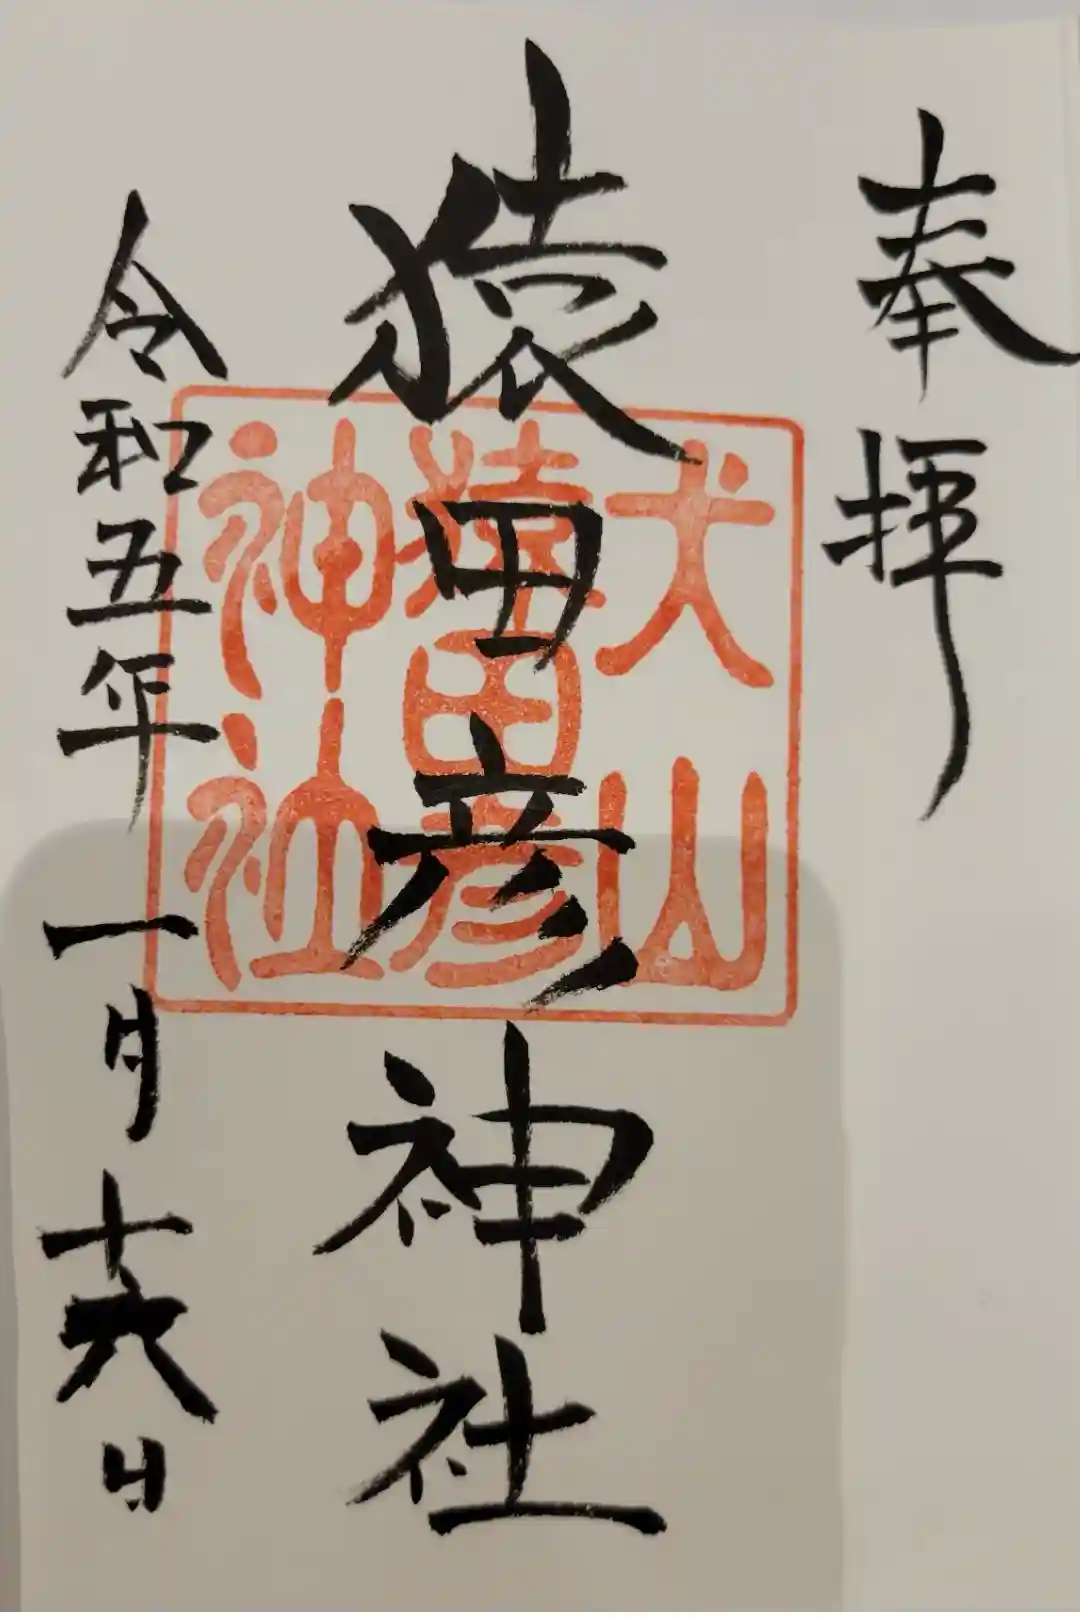 奉拝
猿田彦神社
犬山
猿田彦
神社
令和五年一月十六日